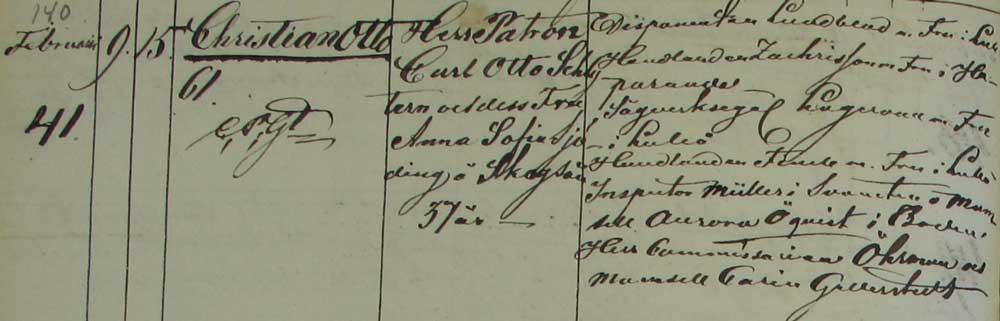 140
Februarii 9. 15. Christian Otto
61
41
Herr Patron
Carl Otto Schö
tern och dess Fru
Anna Sofia Sjö
ding å Skogså
37 år
Disponenten Lundblad m. Fru i Luleå
Handlanden Zachrisson m Fru i Ha-
paranda
Sågverksegaren Lagerman m Fru
i Luleå
Handlanden m. Fru i Luleå
Inspector Müller i Svartön o Mam
sell Aurora Öquist i Boden.
Herr Commissarien Öhrman och
Mamsell Carin Gellerstedt